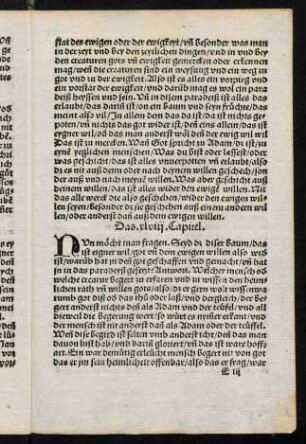 stat des ewigen oder der ewigkeyt/vñ besonder was man
in der zeyt vnd bey den zeytlichen dingen/vnd in vnd bey
den creaturen gots vñ ewigkeit gemercken oder erkennen
mag/weñ die creaturen sind ein weysung vnd ein weg zu
got vnd zu der ewigkeit. Also ist es alles ein vorpürg vnd
ein vorstat der ewigkeit/vnd darüb mag es wol ein para
deiß heyssen vnd sein. Vñ in disem paradeiß ist alles das
erlaubt/das darin ist/on ein baum vnd seyn früchte/das
meint also vil/In allem dem das da ist/da ist nichts ge-
poten/vñ nichts das got wider ist/deñ eins allein/das ist
eygner wil/oð das man anderst wöl deñ der ewig wil wil
Das ist zu mercken. Wañ Got spricht zu Adam/dz ist/zu
eyné yeglichen menschen/Was du bist oder lassest/oder
was geschicht/das ist alles vnuerpotten vñ erlaubt/also
dz es nit auß deinem oder nach deynem willen geschech/son
der auß vnd nach meynẽ willen. Was aber geschicht auß
deinem willen/das ist alles wider den ewigẽ willen. Nit
das alle werck die also geschehen/wider den ewigen wil-
len seyen/besonder dz sie geschehen auß einem andern wil
len/oder anderst dañ auß dem ewigen willen.
Das.xlviij.Capitel.
NVn möcht man fragen. Seyd dz diser baum/das
ist eigner wil/got vñ dem ewigen willen also wið
ist/warüb hat jn deñ got geschaffen vnd gemacht/vñ hat
jn in das paradeyß gesetzt: Antwort. Welcher mensch oð
welche creatur begert zu erfaren vnd zu wissen den heym
lichen rath vñ willen gots/also/dz er gern wolt wissen/war
umb got diß oder das thu oð laß/vnd dergleich/der beger
anderst nichts denn als Adam vnd der teüfel/vnd all
dieweil diß begerung wert/so würt es nymer erkant/vnd
der mensch ist nit anderst dañ als Adam oder der teüffel.
Weñ dise begird ist selten vmb anderst icht/deñ das man
dauon lust hab/vnd darin gloriert/vñ das ist ware hoff-
art. Ein war demütig erleücht mensch begert nit von got
das er jm sein heimlicheit offenbar/also das er frag/war
E iij